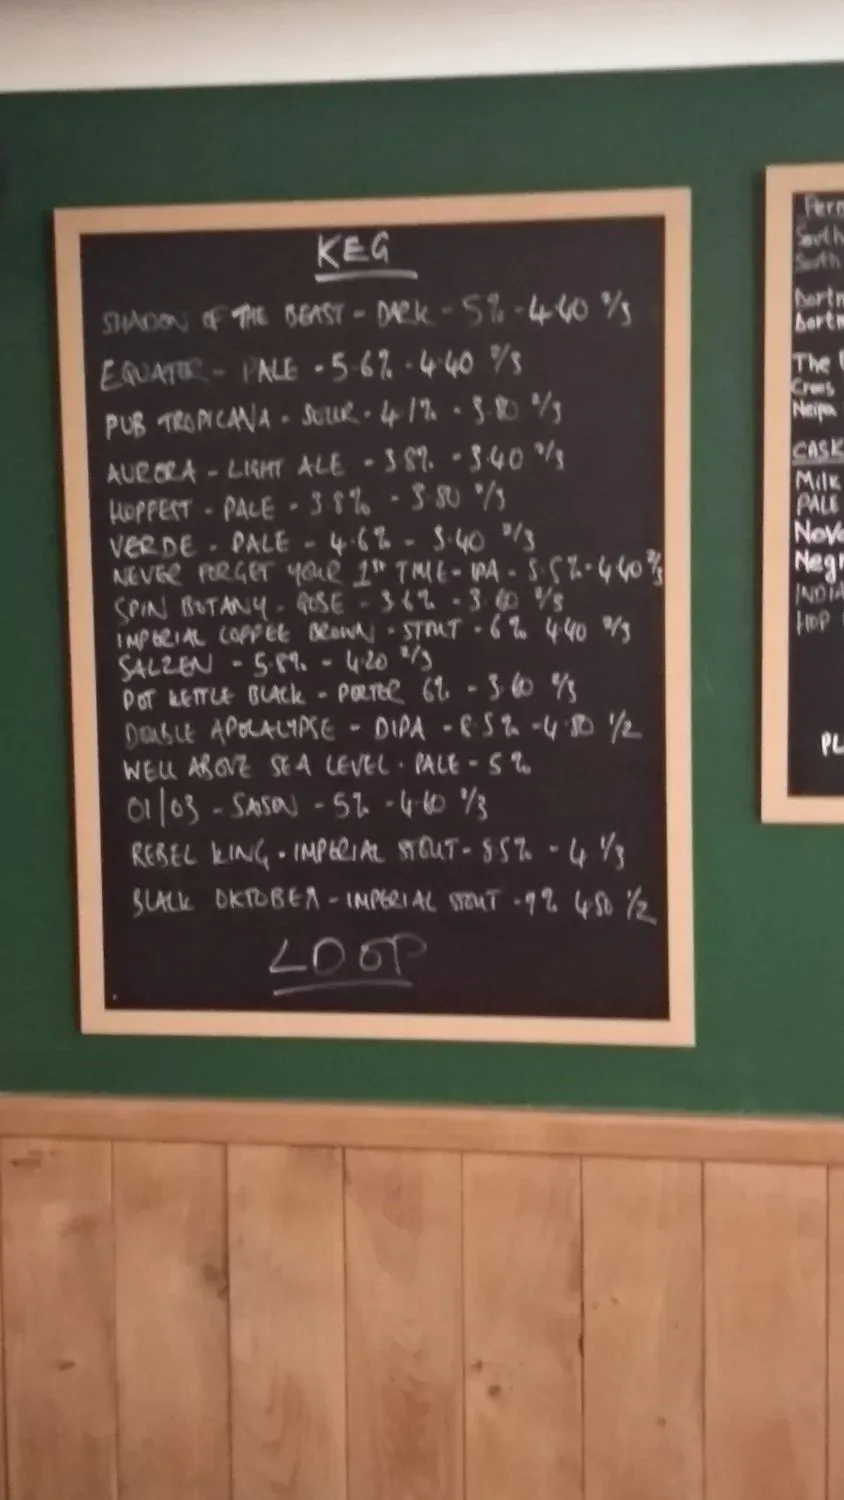 KEG
SHADOW OF THE BEAST - DARK - 5% - 4.40 2/3
EQUATOR - PALE - 5.6% - 4.40 2/3
PUB TROPICANA - SOUR - 4.1% - 3.80 2/3
AURORA - LIGHT ALE - 3.8% - 3.40 2/3
HOPPEST - PALE - 3.8% - 3.80 2/3
VERDE - PALE - 4.6% - 3.40 2/3
NEVER FORGET YOUR 1ST TIME - IPA - 5.5% - 4.40 2/3
SPIN BOTANY - GOSE - 3.6% - 3.60 2/3
IMPERIAL COFFEE BROWN - STOUT - 6% 4.40 2/3
SALZEN - 5.8% - 4.20 2/3
POT KETTLE BLACK - PORTER 6% - 3.60 2/3
DOUBLE APOCALYPSE - DIPA - 8.5% - 4.80 1/2
WELL ABOVE SEA LEVEL - PALE - 5%
01/03 - SAISON - 5% - 4.40 2/3
REBEL KING - IMPERIAL STOUT - 8.5% - 4 1/3
BLACK OKTOBER - IMPERIAL STOUT - 9% 4.50 1/2
LOOP
South
South
The
Cross
Neipa
CASK
Milk
PALE
Nove
Negr
INDIA
HOP
PL